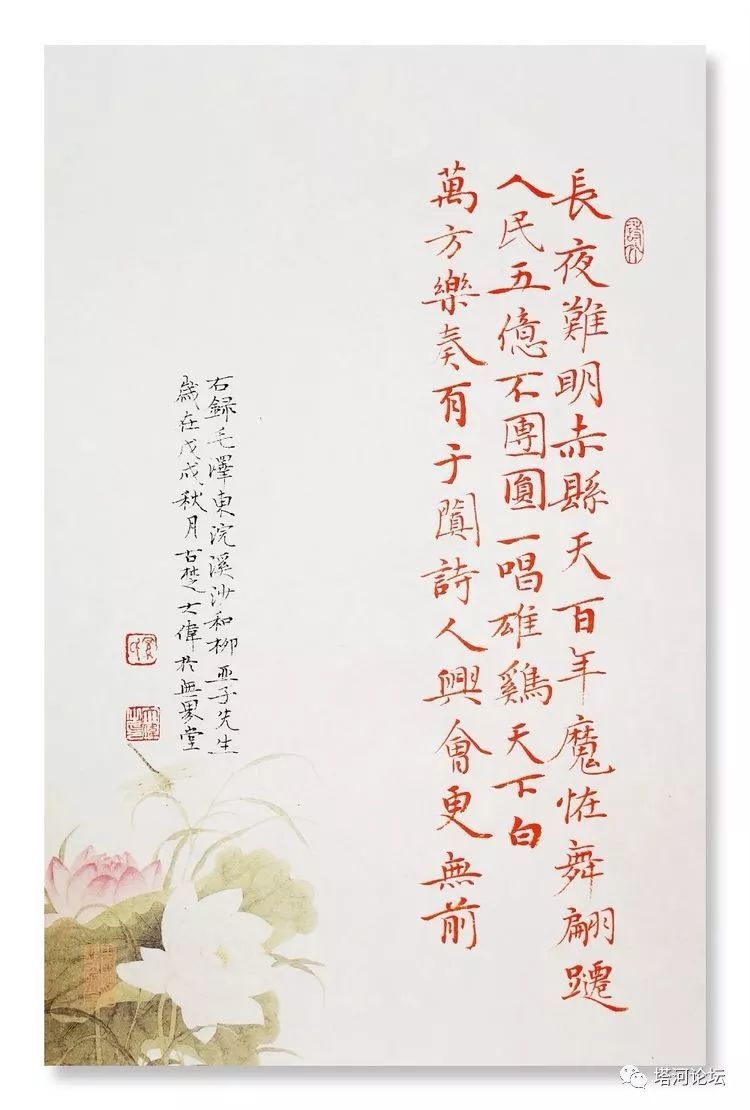 長夜難明赤縣天百年魔恠舞翩躚
人民五億不團圓一唱雄鷄天下白
萬方樂奏有于闐詩人興會更無前
右録毛澤東浣溪沙和柳亞子先生
歲在戊戌秋月古楚大偉於無堂
塔河论坛